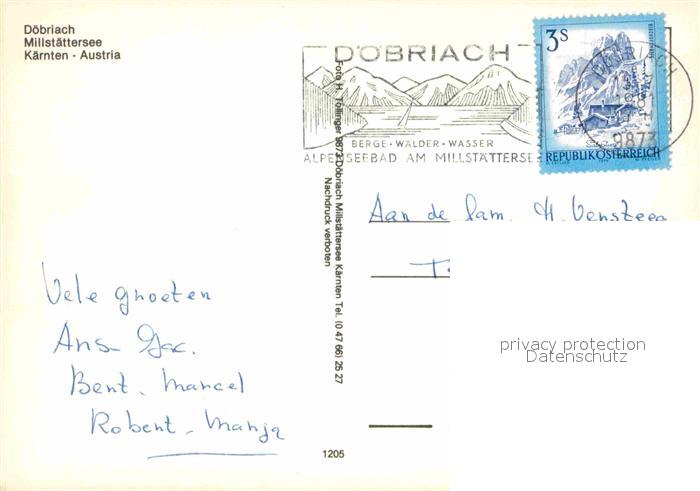 Döbriach
Millstättersee
Kärnten - Austria
DÖBRIACH
BERGE · WÄLDER · WASSER
ALPENSEEBAD AM MILLSTÄTTERSE
3S
REPUBLIK ÖSTERREICH
9873
Foto H. Tollinger 9873 Döbriach Millstättersee Kärnten Tel. (0 47 66) 25 27
Nachdruck verboten
Aan de fam. H. Vensteeg
Vele groeten
Ans Jac.
Bent. Marcel
Robent. Manja
1205
privacy protection
Datenschutz